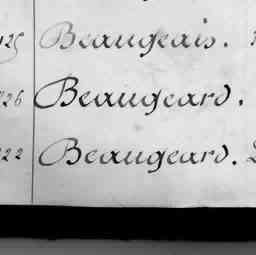 Beaugeais.
26 Beaugeard.
22 Beaugeard.